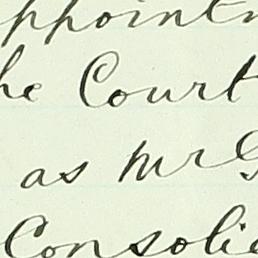 ppoint
he Court
as Mr G
Consoli